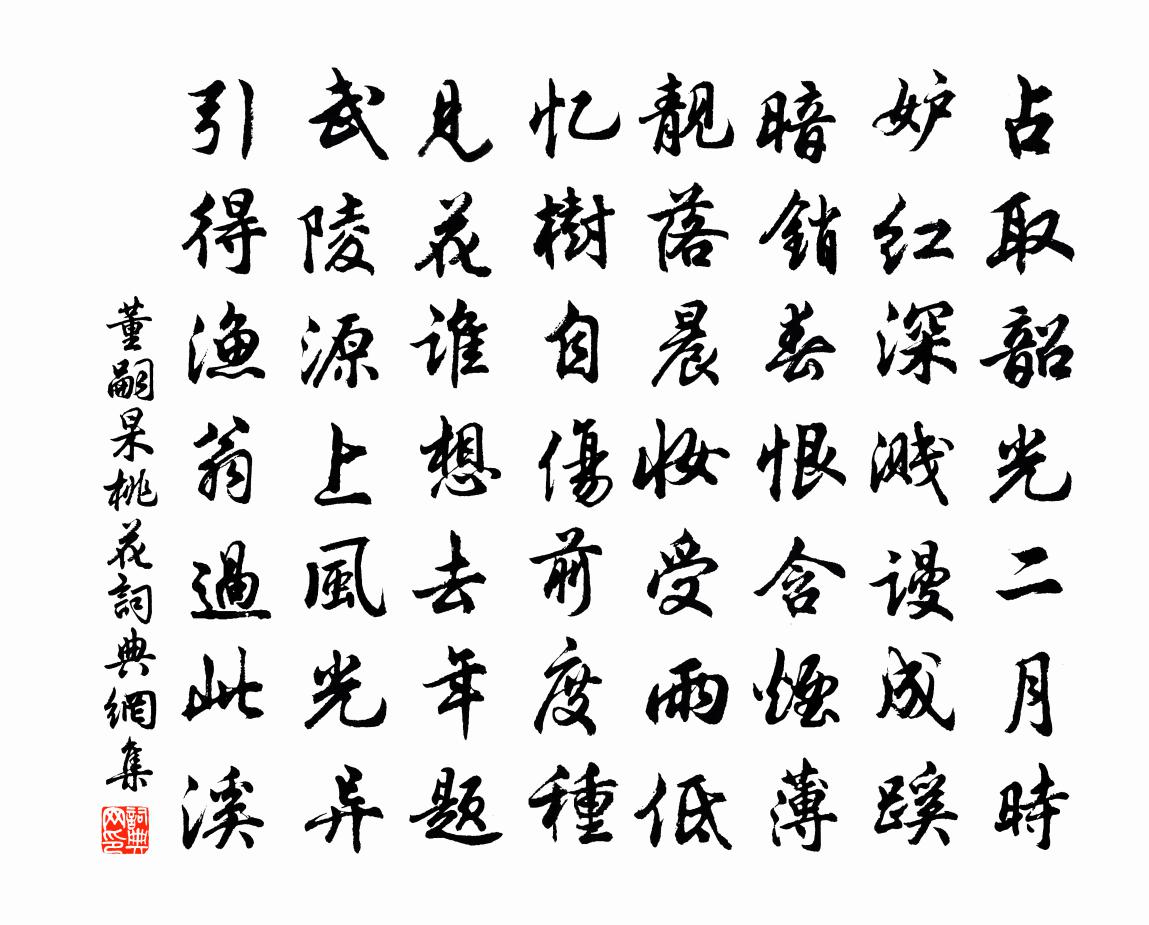 占取韶光二月時
妒红深溅谩成蹊
暗銷春恨含煙薄
靚落晨妆受雨低
忆樹自傷前度種
見花谁想去年题
武陵源上風光异
引得渔翁過此溪
董嗣杲桃花詞典網集
詞典網印